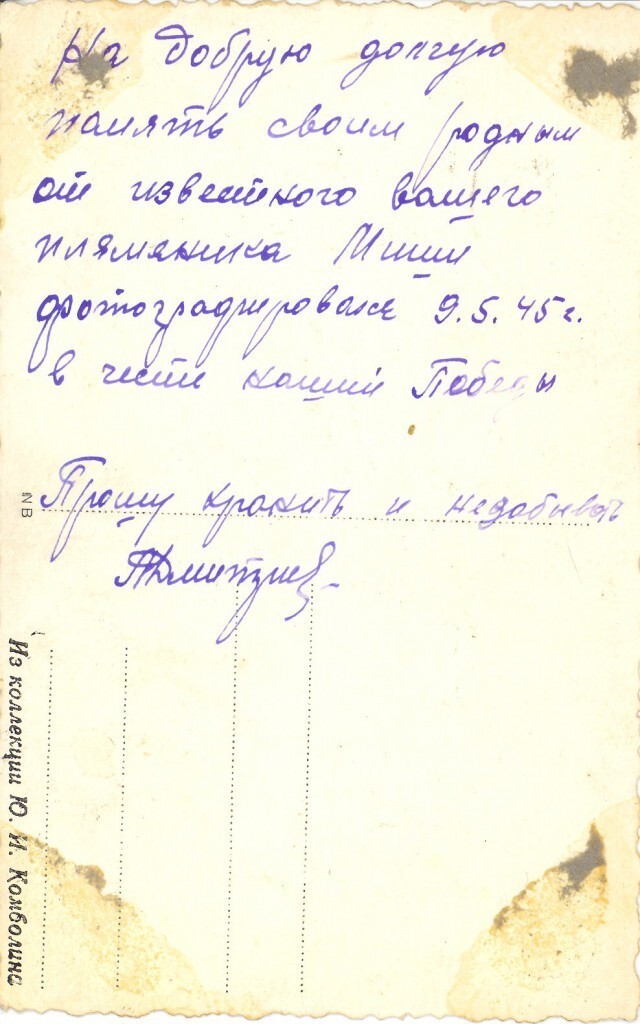 На добрую долгую
память своим родным
от известного вашего
племяника Миши
фотографирован 9.5.45г.
в честь нашей Победы
Прошу хранить и незабывать
АДмитриев
NB
Из коллекции Ю. И. Комболина